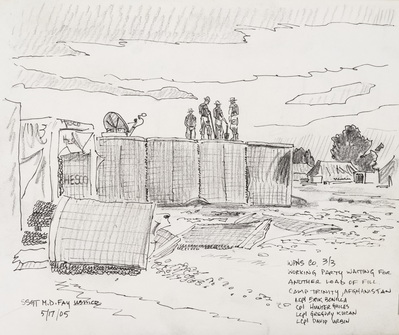 HESCO
SSGT M.D. FAY USMCR
5/17/05
WPNS CO. 3/3
WORKING PARTY WAITING FOR
ANOTHER LOAD OF FILL
CAMP TRINITY, AFGHANISTAN
LCPL ERIK
CPL HUNTER
LCPL GREGORY
LCPL DAVID